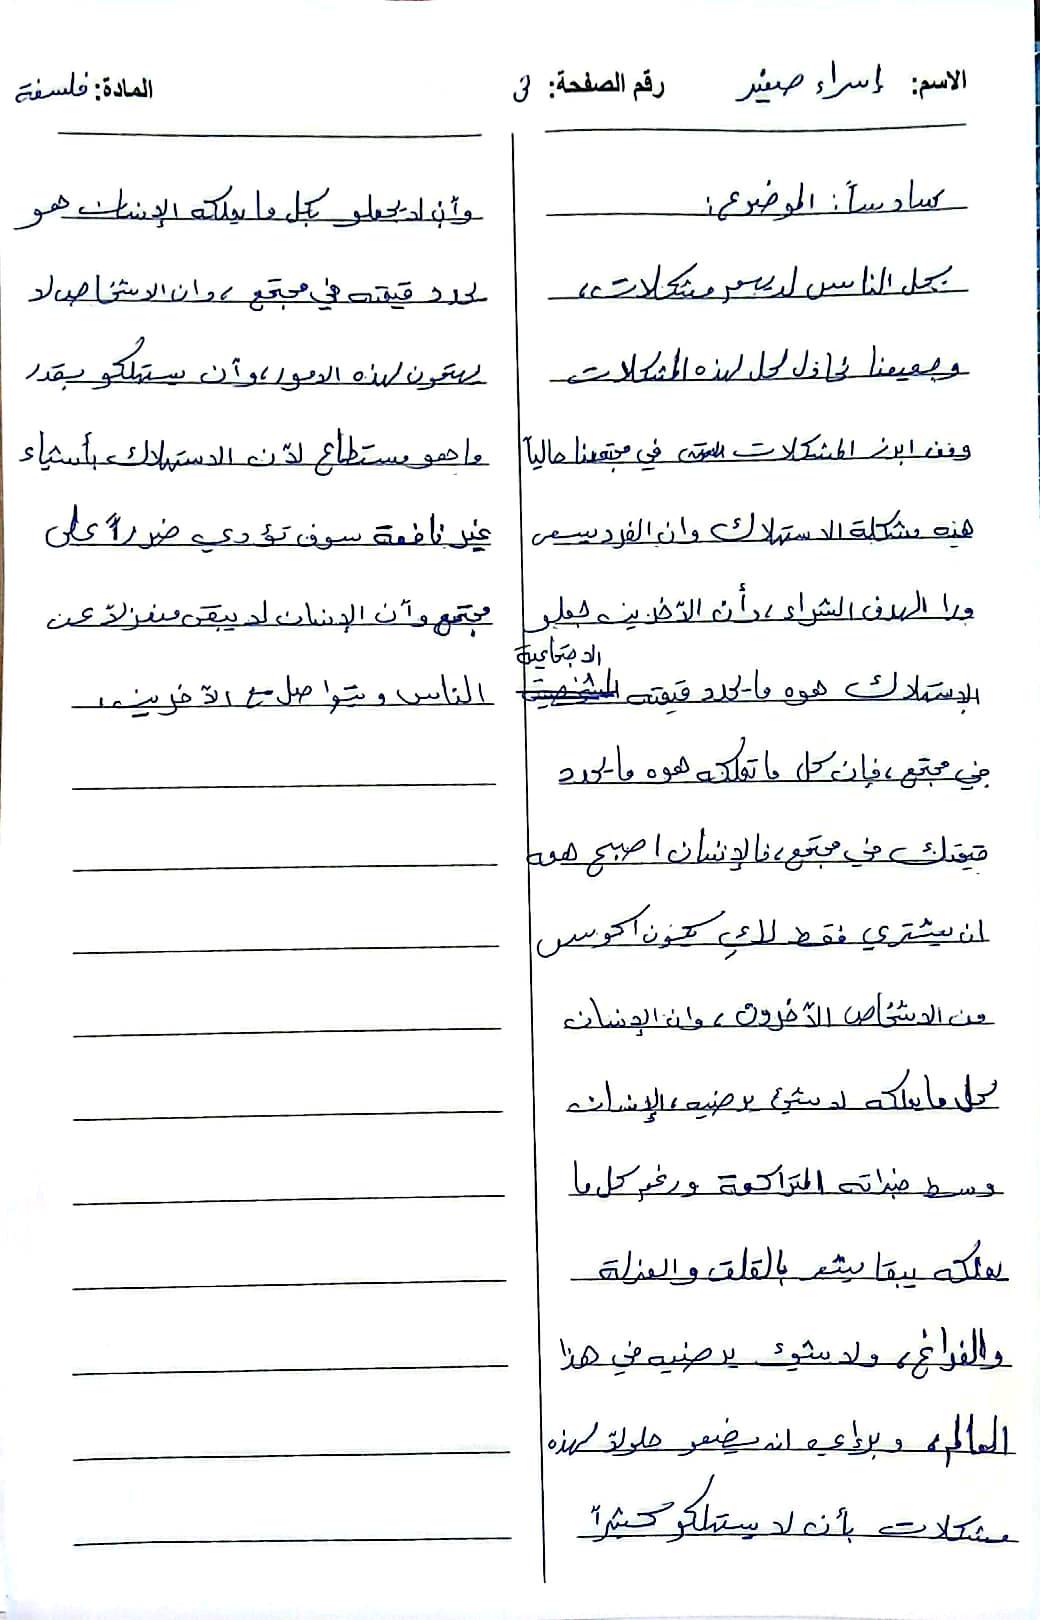 الاسم: إسراء صغير
رقم الصفحة: 3
المادة: فلسفة
سادساً: الموضوع:
بكل الناس لديهم مشكلات،
وجميعنا نحاذل لحل لهذه المشكلات
ومن ابرز المشكلات في مجتمعنا حالياً
هذه مشكلة الاستهلاك وان الفرد يسعى
ورا الهدف الشراء، وأن الآخرين جعلو
الإستهلاك هوه ما يحدد قيمته الاجتماعية
في مجتمع، فإن كل ما تملكه هوه ما يحدد
قيمتك في مجتمع، فالإنسان اصبح همه
ان يشتري فقط لاكي يكون اكويس
من الاشخاص الآخرون، وان الإنسان
كل ما يملكه لا شيئ يرضيه، الإنسان
وسط خيراته المتراكمة ورغم كل ما
يملكه يبقا يشعر بالقلق والعزلة
والفراغ، ولا شيء يرضيه في هذا
العالم، وبرأي انه يضعو حلولاً لهذه
مشكلات بأن لا يستهلكو كثيراً
وأن لا يجعلو بكل ما يملكه الإنسان هو
يحدد قيمته في مجتمع، وان الاشخاص لا
يهتمون لهذه الامور، وأن يستهلكو بقدر
ما هو مستطاع لأن الاستهلاك بأشياء
غير نافعة سوف تؤدي ضرراً على
مجتمع وأن الإنسان لا يبقى منعزلاً عن
الناس ويتواصل مع الآخرين.